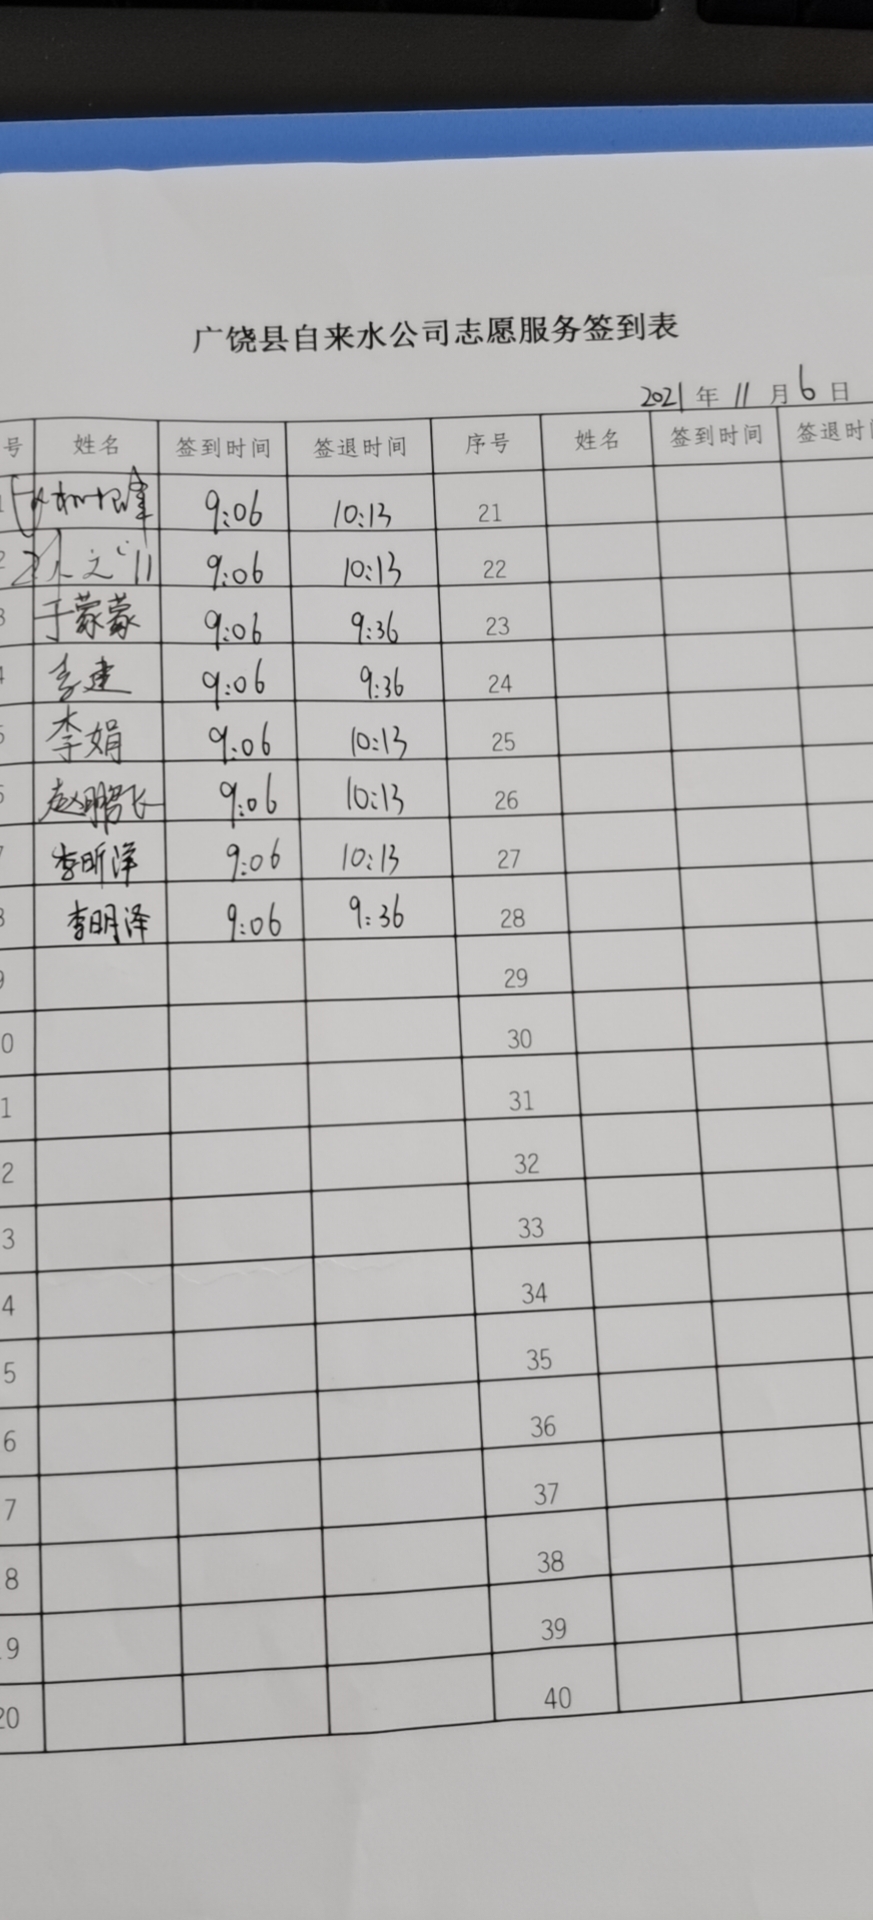 广饶县自来水公司志愿服务签到表
2021年11月6日
号 姓名 签到时间 签退时间 序号 姓名 签到时间 签退时
1 9:06 10:13 21
2 9:06 10:13 22
3 于蒙蒙 9:06 9:36 23
4 李建 9:06 9:36 24
5 李娟 9:06 10:13 25
6 赵鹏飞 9:06 10:13 26
7 李昕洋 9:06 10:13 27
8 李明泽 9:06 9:36 28
9 29
0 30
1 31
2 32
3 33
4 34
5 35
6 36
7 37
8 38
9 39
20 40